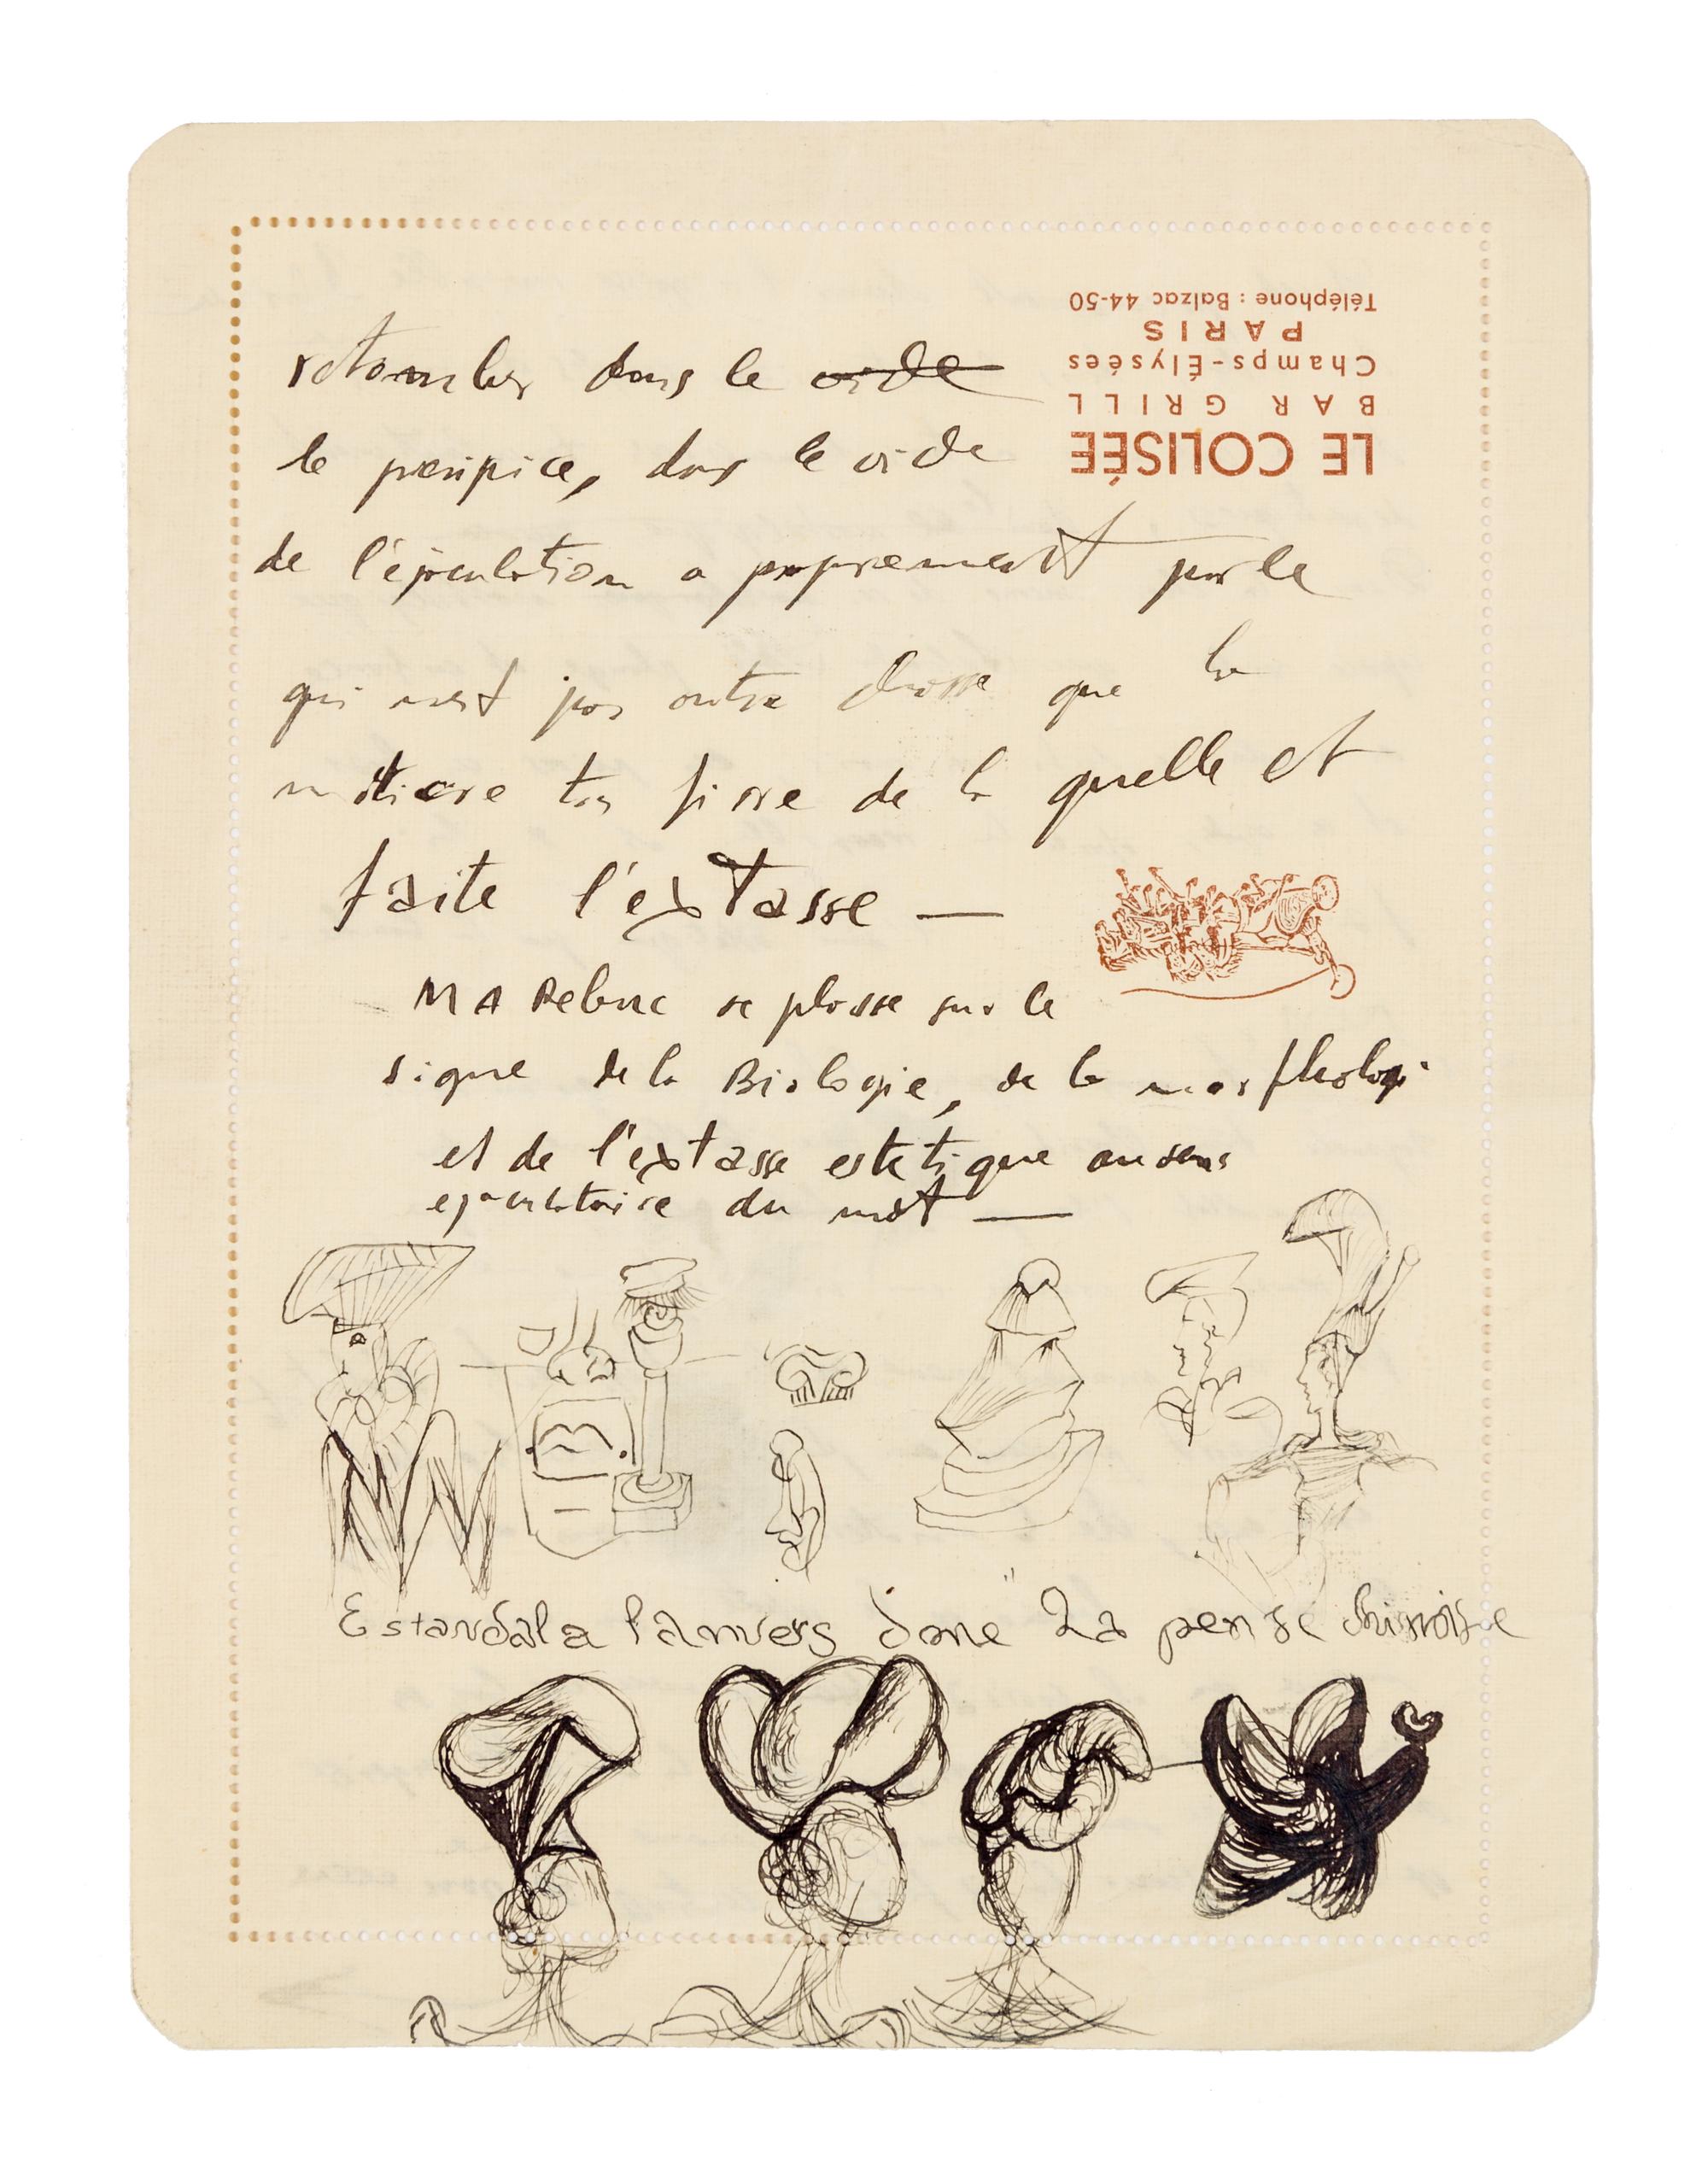 retomber dans le vide
le presipice, dans le vide
de l'ejaculation a poprement parle
qui nest pas autre chosse que la
matiere tres fiere de la quelle et
faite l'extasse —
MA Rebue se plasse sur le
signe de la Biologie, de la morfhologi
et de l'extasse estetique au sens
ejaculatoire du mot —
Estandal a l'anvers done "La pense chinoise
LE COLISÉE
BAR GRILL
Champs-Élysées
PARIS
Téléphone : Balzac 44-50